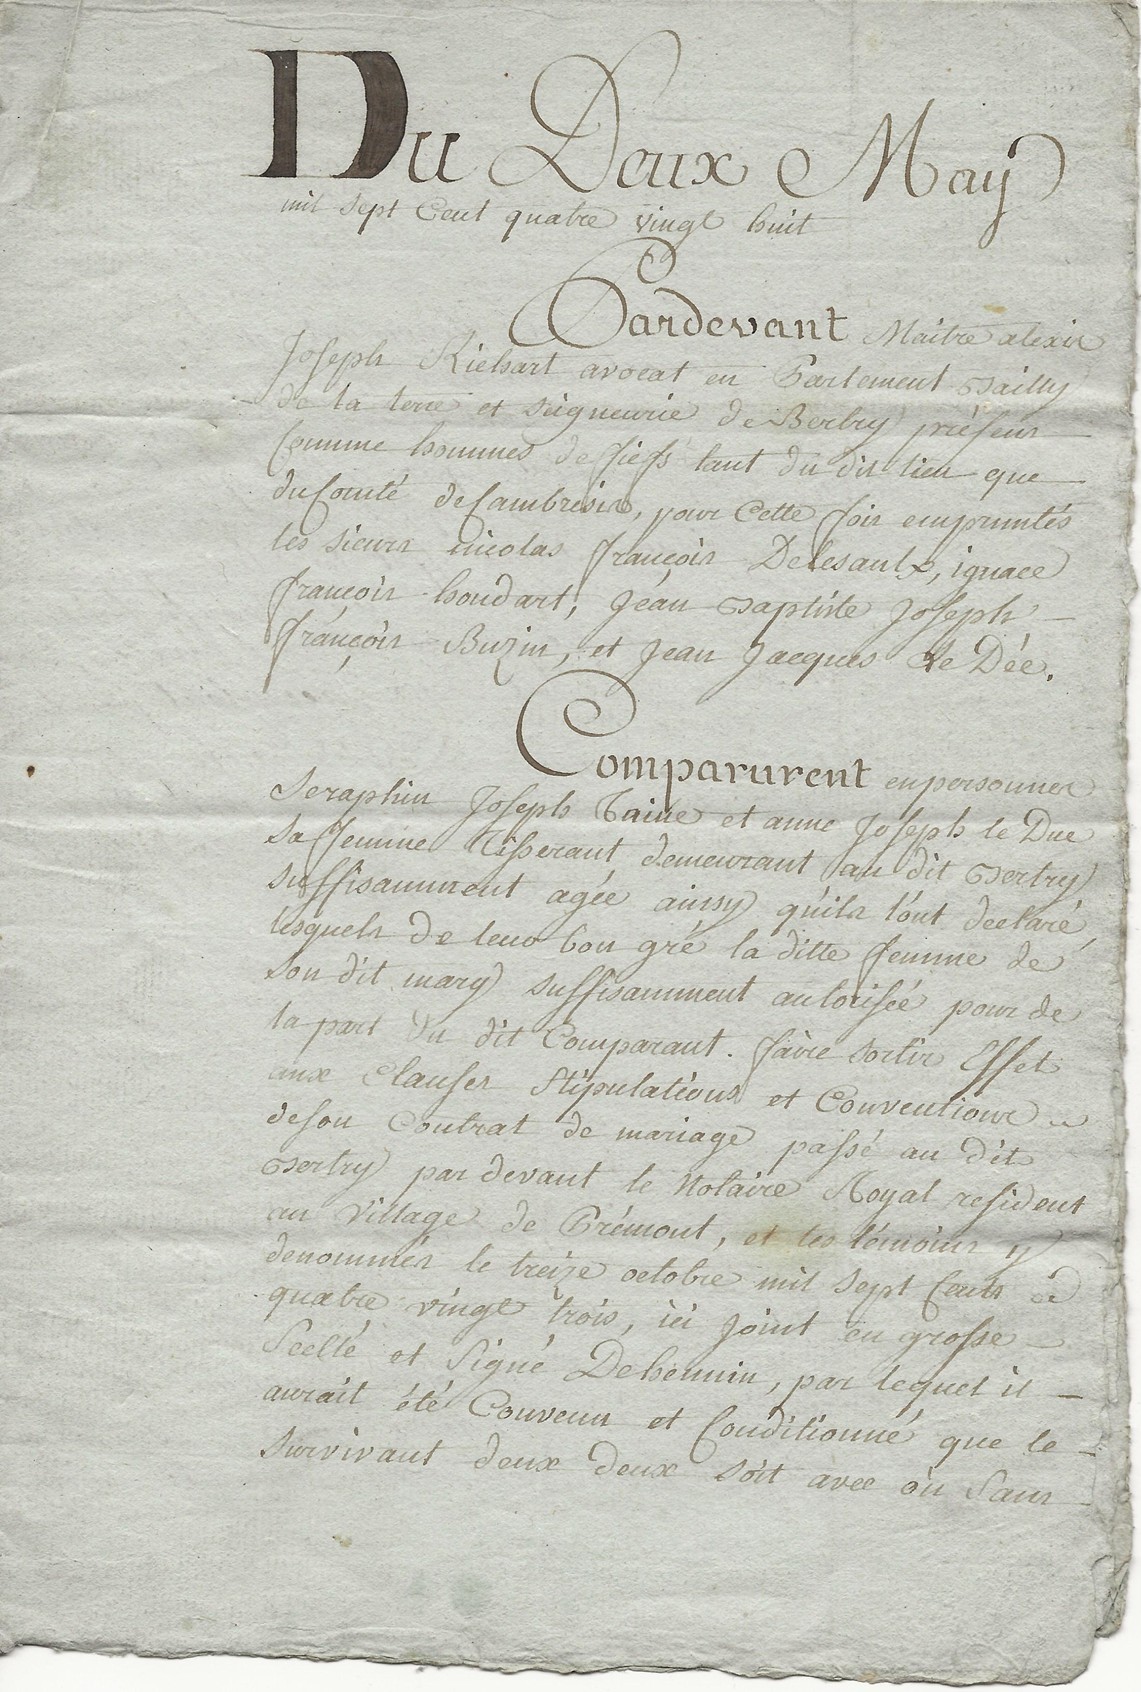 Du Deux May
mil sept Cent quatre vingt huit
Pardevant Maitre alexis
Joseph Richart avocat en Parlement Bailly
de la terre et seigneurie de Bertry présens
Comme hommes de fiefs tant du dit lieu que
du Comté de Cambresis, pour Cette fois empruntés
les sieurs nicolas françois Delesaulx, ignace
françois houdart, Jean Baptiste Joseph
françois Buzin, et Jean Jacques le Dée.
Comparurent en personnes
Seraphin Joseph Taine et anne Joseph le Duc
sa femme Tisserant demeurant au dit Bertry
suffisamment agée ainsy qu'ils l'ont declaré,
lesquels de leur bon gré la ditte femme de
son dit mary suffisamment autorisée pour de
la part du dit Comparant. faire sortir Effet
aux Clauses Stipulations et Conventions
de son Contrat de mariage passé au dit
Bertry par devant le Notaire Royal resident
au Village de Prémont, et les témoins y
denommés le treize octobre mil sept Cents
quatre vingt trois, ici joint en grosse
Scellé et Signé Dehennin, par lequel il
aurait été Convenu et Conditionné que le
survivant deux deux soit avec ou Sans